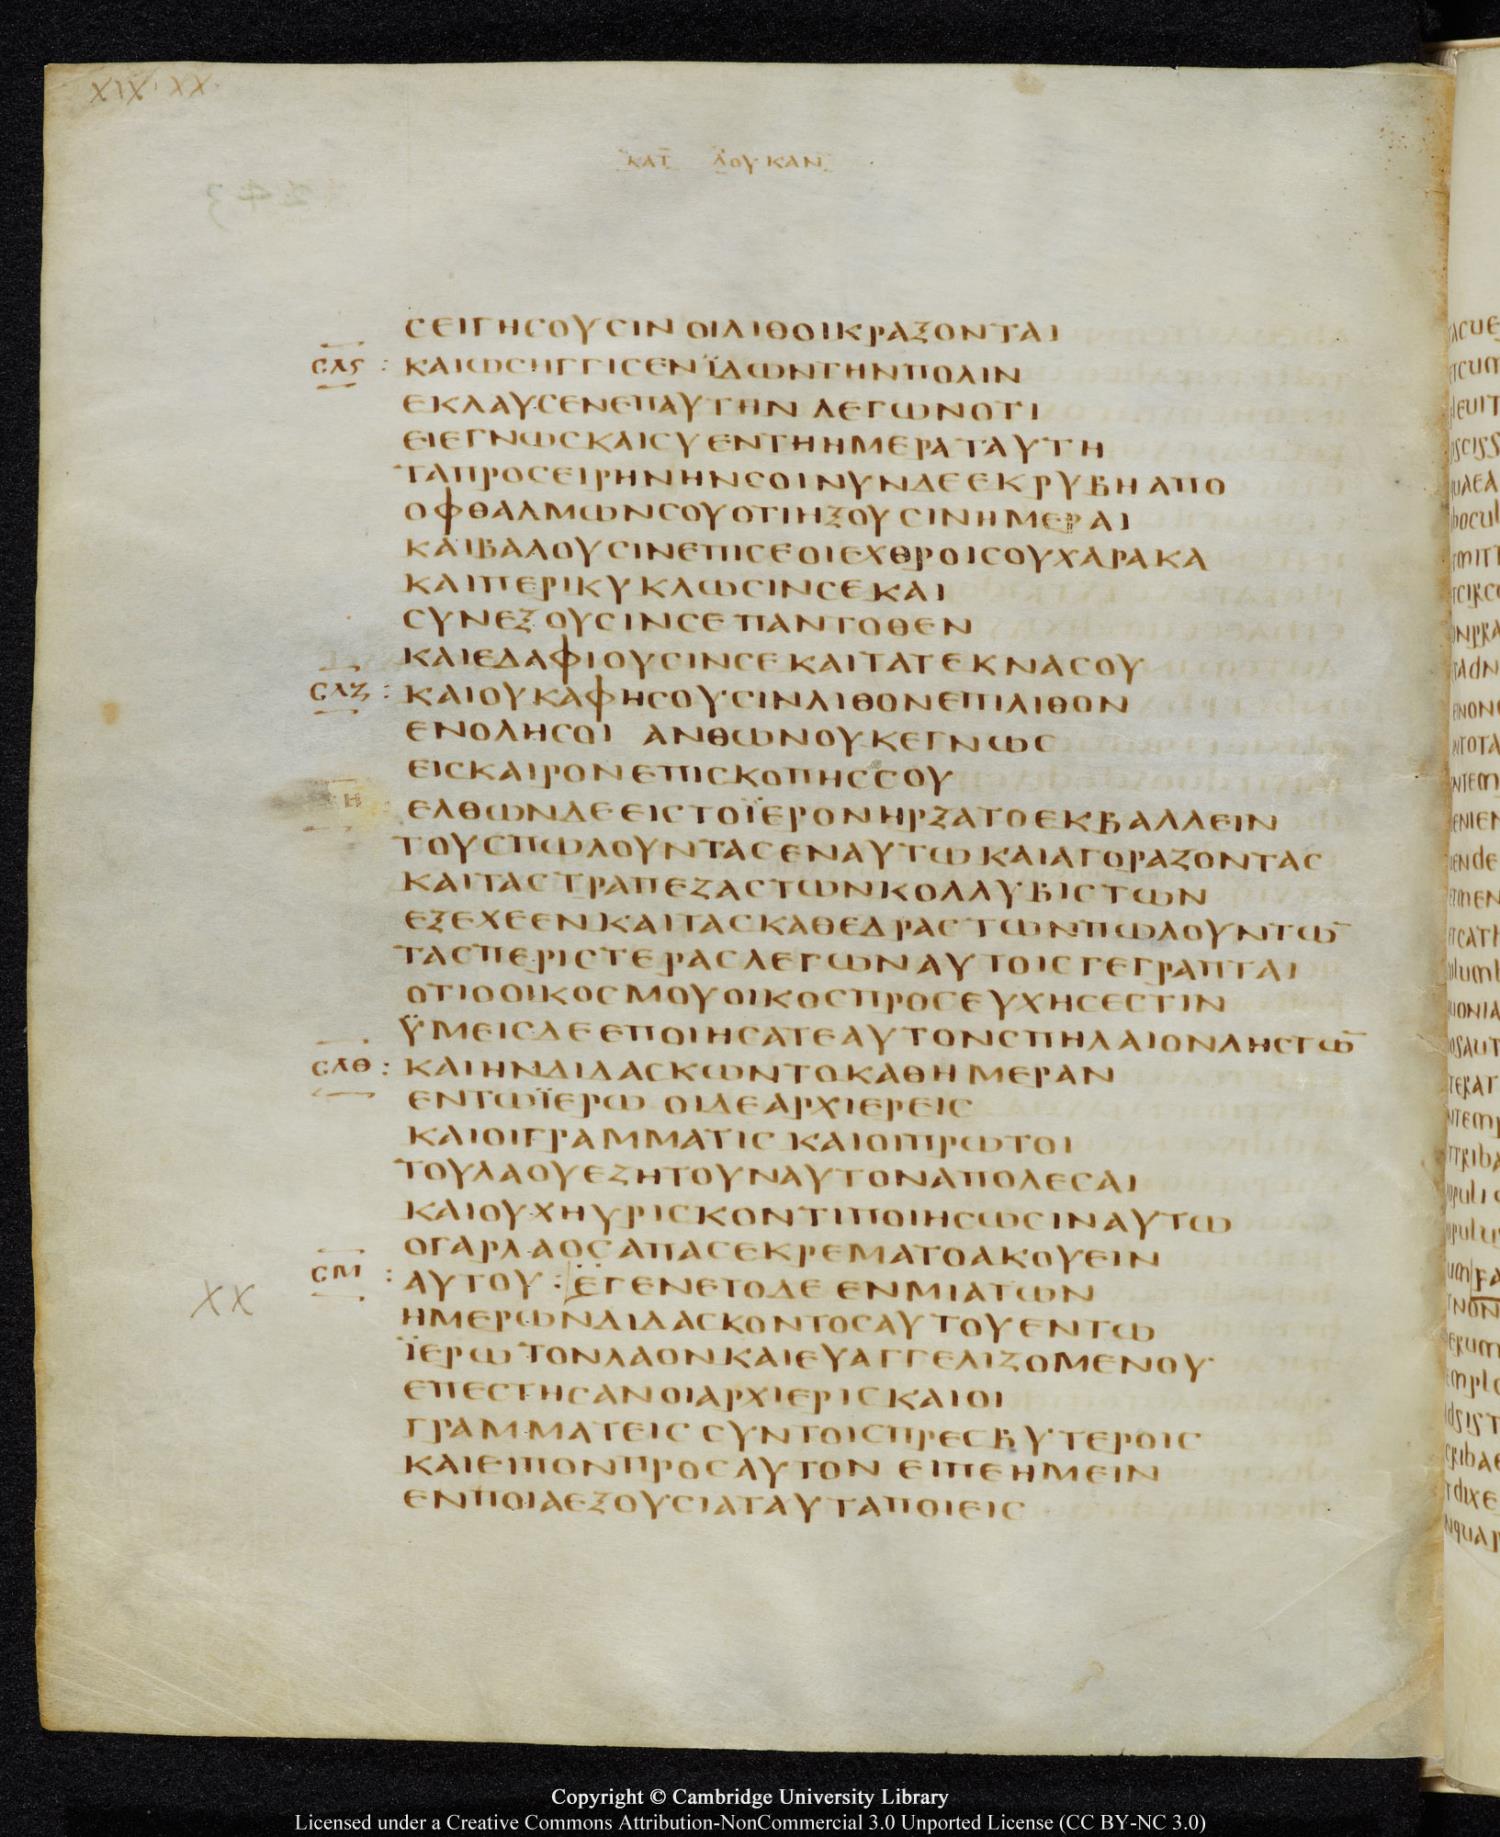 XIX XX
ΚΑΤ ΛΟΥΚΑΝ
ΣΕΙΓΗΣΟΥΣΙΝ ΟΙΛΙΘΟΙΚΡΑΞΟΝΤΑΙ
ΣΛϚ : ΚΑΙΩΣΗΓΓΙΣΕΝΪΔΩΝΤΗΝΠΟΛΙΝ
ΕΚΛΑΥΣΕΝΕΠΑΥΤΗΝ ΛΕΓΩΝΟΤΙ
ΕΙΕΓΝΩΣΚΑΙΣΥΕΝΤΗΗΜΕΡΑΤΑΥΤΗ
ΤΑΠΡΟΣΕΙΡΗΝΗΝΣΟΙΝΥΝΔΕΕΚΡΥΒΗΑΠΟ
ΟΦΘΑΛΜΩΝΣΟΥΟΤΙΗΞΟΥΣΙΝΗΜΕΡΑΙ
ΚΑΙΒΑΛΟΥΣΙΝΕΠΙΣΕΟΙΕΧΘΡΟΙΣΟΥΧΑΡΑΚΑ
ΚΑΙΠΕΡΙΚΥΚΛΩΣΙΝΣΕΚΑΙ
ΣΥΝΕΞΟΥΣΙΝΣΕΠΑΝΤΟΘΕΝ
ΚΑΙΕΔΑΦΙΟΥΣΙΝΣΕΚΑΙΤΑΤΕΚΝΑΣΟΥ
ΣΛΖ : ΚΑΙΟΥΚΑΦΗΣΟΥΣΙΝΛΙΘΟΝΕΠΙΛΙΘΟΝ
ΕΝΟΛΗΣΟΙ ΑΝΘΩΝΟΥΚΕΓΝΩΣ
ΕΙΣΚΑΙΡΟΝΕΠΙΣΚΟΠΗΣΣΟΥ
Η : ΕΛΘΩΝΔΕΕΙΣΤΟΪΕΡΟΝΗΡΞΑΤΟΕΚΒΑΛΛΕΙΝ
ΤΟΥΣΠΩΛΟΥΝΤΑΣΕΝΑΥΤΩΚΑΙΑΓΟΡΑΖΟΝΤΑΣ
ΚΑΙΤΑΣΤΡΑΠΕΖΑΣΤΩΝΚΟΛΛΥΒΙΣΤΩΝ
ΕΞΕΧΕΕΝΚΑΙΤΑΣΚΑΘΕΔΡΑΣΤΩΝΠΩΛΟΥΝΤΩ̅
ΤΑΣΠΕΡΙΣΤΕΡΑΣΛΕΓΩΝΑΥΤΟΙΣΓΕΓΡΑΠΤΑΙ
ΟΤΙΟΟΙΚΟΣΜΟΥΟΙΚΟΣΠΡΟΣΕΥΧΗΣΕΣΤΙΝ
ΫΜΕΙΣΔΕΕΠΟΙΗΣΑΤΕΑΥΤΟΝΣΠΗΛΑΙΟΝΛΗΣΤΩ̅
ΣΛΘ : ΚΑΙΗΝΔΙΔΑΣΚΩΝΤΟΚΑΘΗΜΕΡΑΝ
ΕΝΤΩΪΕΡΩ ΟΙΔΕΑΡΧΙΕΡΕΙΣ
ΚΑΙΟΙΓΡΑΜΜΑΤΙΣ ΚΑΙΟΙΠΡΩΤΟΙ
ΤΟΥΛΑΟΥΕΖΗΤΟΥΝΑΥΤΟΝΑΠΟΛΕΣΑΙ
ΚΑΙΟΥΧΗΥΡΙΣΚΟΝΤΙΠΟΙΗΣΩΣΙΝΑΥΤΩ
ΟΓΑΡΛΑΟΣΑΠΑΣΕΚΡΕΜΑΤΟΑΚΟΥΕΙΝ
ΣΜ : ΑΥΤΟΥ : ΕΓΕΝΕΤΟΔΕ ΕΝΜΙΑΤΩΝ
XX
ΗΜΕΡΩΝΔΙΔΑΣΚΟΝΤΟΣΑΥΤΟΥΕΝΤΩ
ΪΕΡΩΤΟΝΛΑΟΝΚΑΙΕΥΑΓΓΕΛΙΖΟΜΕΝΟΥ
ΕΠΕΣΤΗΣΑΝΟΙΑΡΧΙΕΡΙΣΚΑΙΟΙ
ΓΡΑΜΜΑΤΕΙΣ ΣΥΝΤΟΙΣΠΡΕΣΒΥΤΕΡΟΙΣ
ΚΑΙΕΙΠΟΝΠΡΟΣΑΥΤΟΝ ΕΙΠΕΗΜΕΙΝ
ΕΝΠΟΙΑΕΞΟΥΣΙΑΤΑΥΤΑΠΟΙΕΙΣ
Copyright © Cambridge University Library
Licensed under a Creative Commons Attribution-NonCommercial 3.0 Unported License (CC BY-NC 3.0)